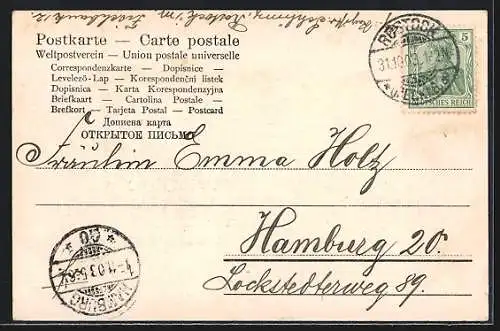 Rostock i/m
Postkarte — Carte postale
Weltpostverein — Union postale universelle
Correspondenzkarte — Dopisnice —
Levelező-Lap — Korespondenční listek
Dopisnica — Karta Korespondenzyjna
Briefkaart — Cartolina Postale —
Brefkort — Tarjeta Postal — Postcard
Дописна карта
ОТКРЫТОЕ ПИСЬМО
ROSTOCK
31.10.03
5
DEUTSCHES REICH
Fräulein Emma Holz
Hamburg 20.
Lockstedterweg 89.
HAMBURG
1.11.03
* 20 *